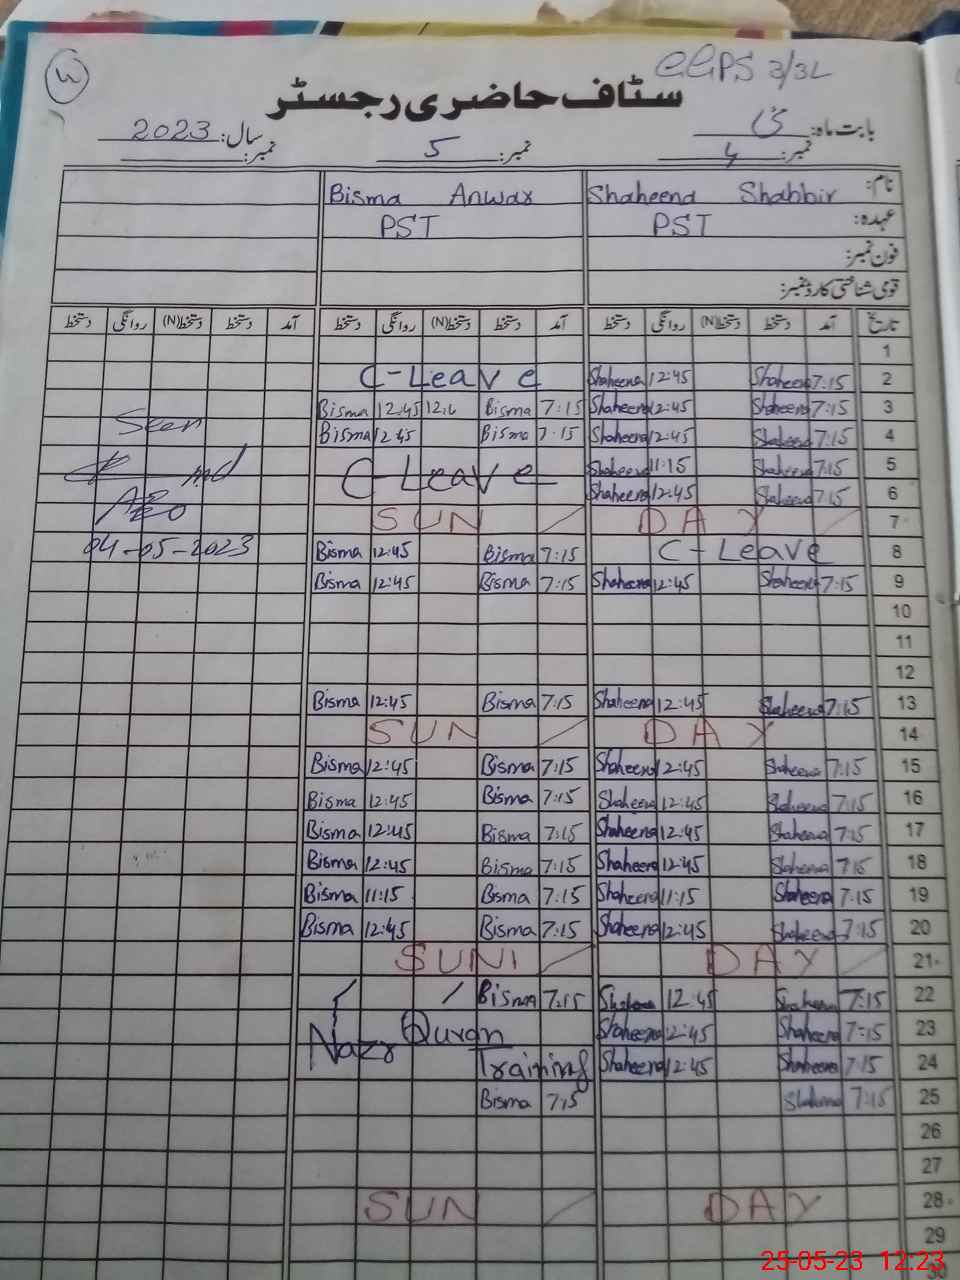 GGPS 3/3L
سٹاف حاضری رجسٹر
بابت ماہ: مئی سال: 2023
نمبر: 4 نمبر: 5 نمبر:
نام: Shaheena Shabbir Bisma Anwar
عہدہ: PST PST
فون نمبر:
قومی شناختی کارڈ نمبر:
تاریخ آمد دستخط دستخط(N) روانگی دستخط آمد دستخط دستخط(N) روانگی دستخط آمد دستخط دستخط(N) روانگی دستخط
1
C-Leave Shaheena 12:45 Shaheena 7:15 2
Bisma 12:45 Bisma 7:15 Shaheena 12:45 Shaheena 7:15 3
Seen Bisma 12:45 Bisma 7:15 Shaheena 12:45 Shaheena 7:15 4
C-Leave Shaheena 11:15 Shaheena 7:15 5
AEO Shaheena 12:45 Shaheena 7:15 6
SUN / DAY / 7
04-05-2023 Bisma 12:45 Bisma 7:15 C-Leave 8
Bisma 12:45 Bisma 7:15 Shaheena 12:45 Shaheena 7:15 9
10
11
12
Bisma 12:45 Bisma 7:15 Shaheena 12:45 Shaheena 7:15 13
SUN / DAY 14
Bisma 12:45 Bisma 7:15 Shaheena 12:45 Shaheena 7:15 15
Bisma 12:45 Bisma 7:15 Shaheena 12:45 Shaheena 7:15 16
Bisma 12:45 Bisma 7:15 Shaheena 12:45 Shaheena 7:15 17
Bisma 12:45 Bisma 7:15 Shaheena 12:45 Shaheena 7:15 18
Bisma 11:15 Bisma 7:15 Shaheena 11:15 Shaheena 7:15 19
Bisma 12:45 Bisma 7:15 Shaheena 12:45 Shaheena 7:15 20
SUN / DAY / 21
Bisma 7:15 Shaheena 12:45 Shaheena 7:15 22
Nazra Quran Shaheena 12:45 Shaheena 7:15 23
Training Shaheena 12:45 Shaheena 7:15 24
Bisma 7:15 Shaheena 7:15 25
26
27
SUN / DAY 28
29
30
25-05-23 12:23